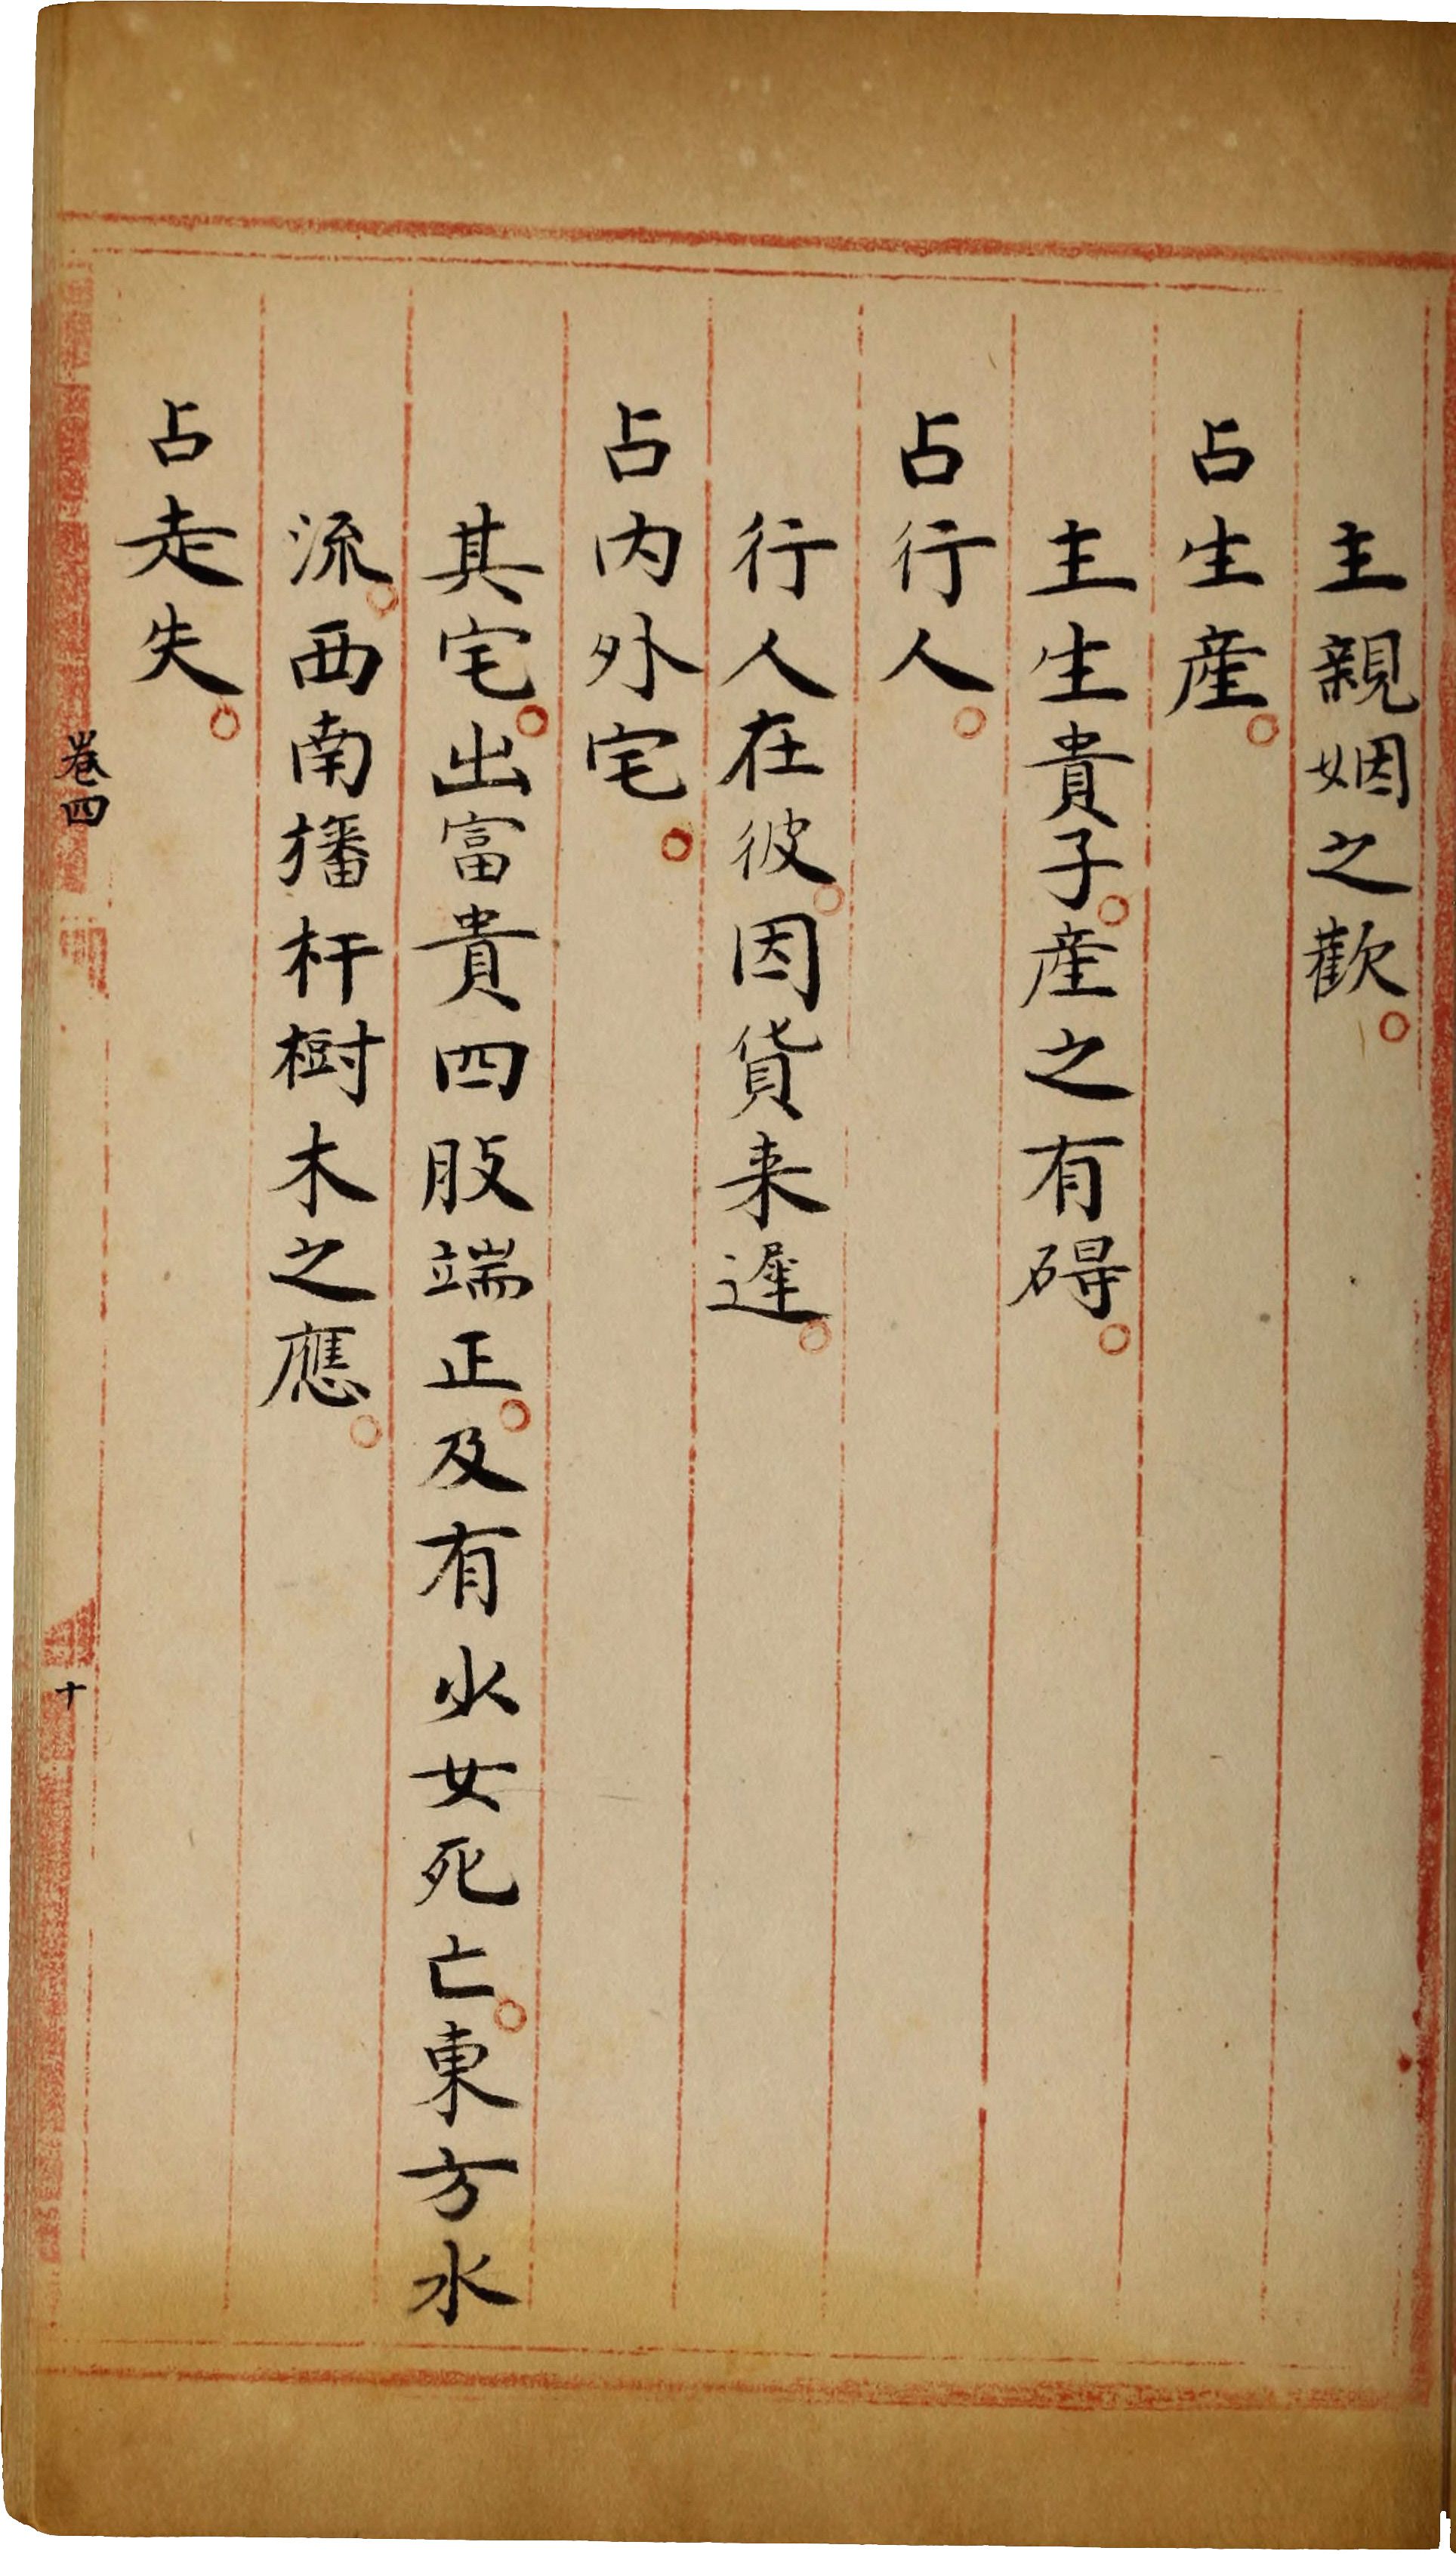 主親姻之歡。
占生産。
主生貴子。産之有碍。
占行人。
行人在彼。因貨来遲。
占内外宅。
其宅。出富貴四肢端正。及有少女死亡。東方水
流。西南播杆樹木之應。
占走失。
卷四
十